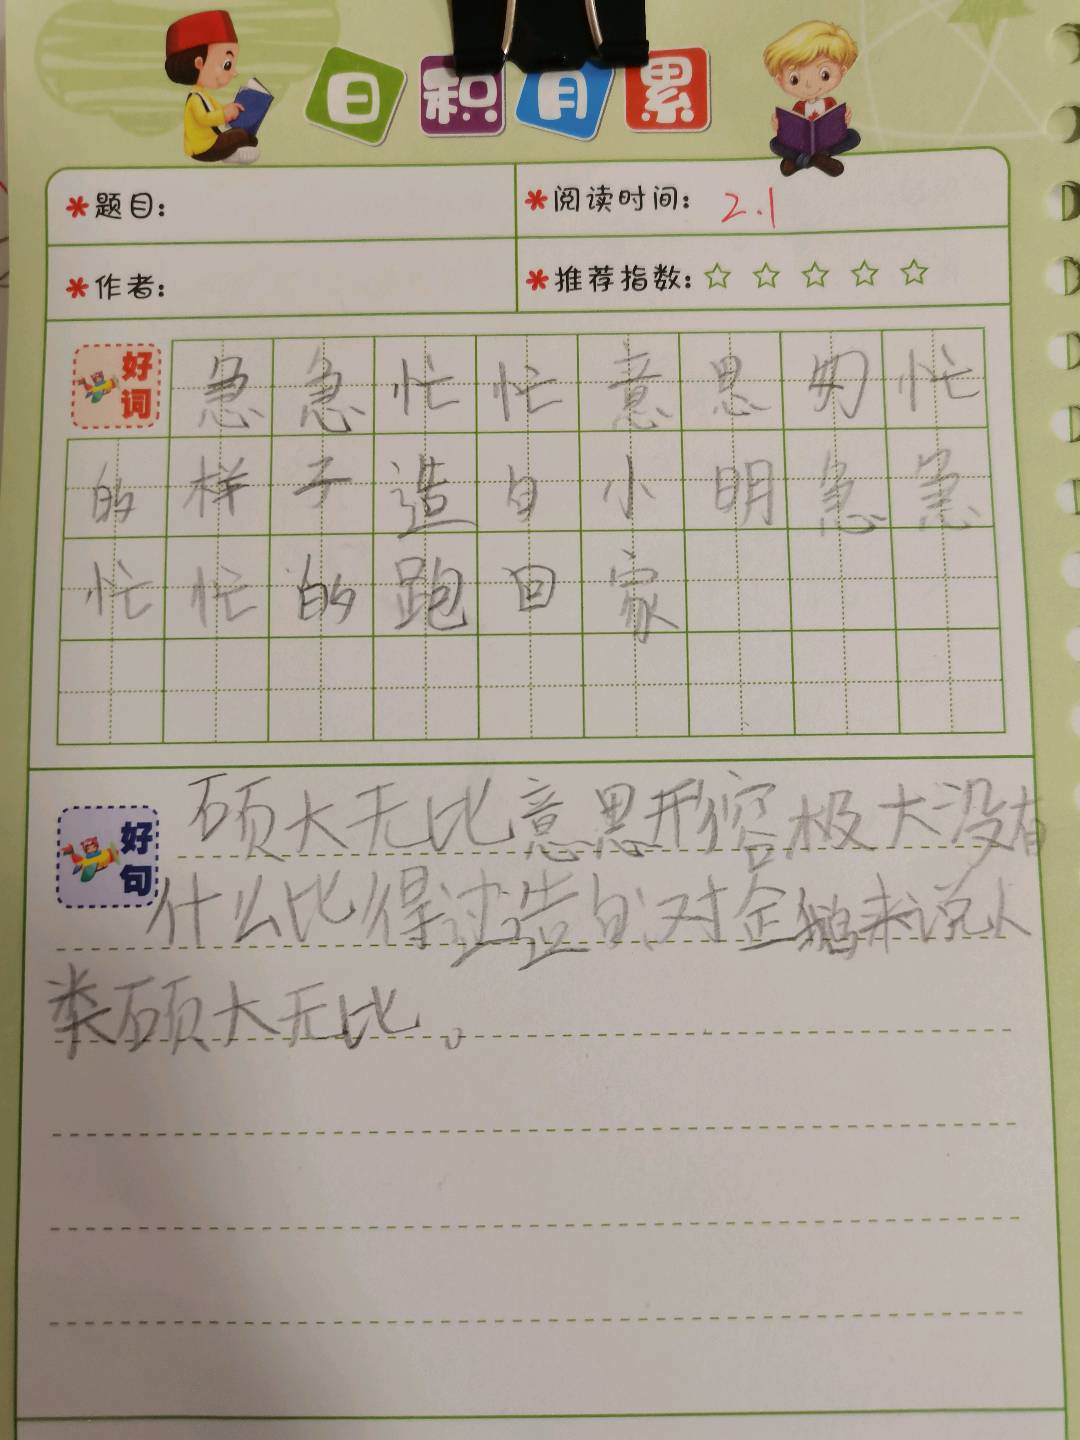 日积月累
题目：
阅读时间：2.1
作者：
推荐指数：
好词
急急忙忙意思匆忙
的样子造句小明急急
忙忙的跑回家
好句
硕大无比意思形容极大没有
什么比得过造句对企鹅来说人
类硕大无比。